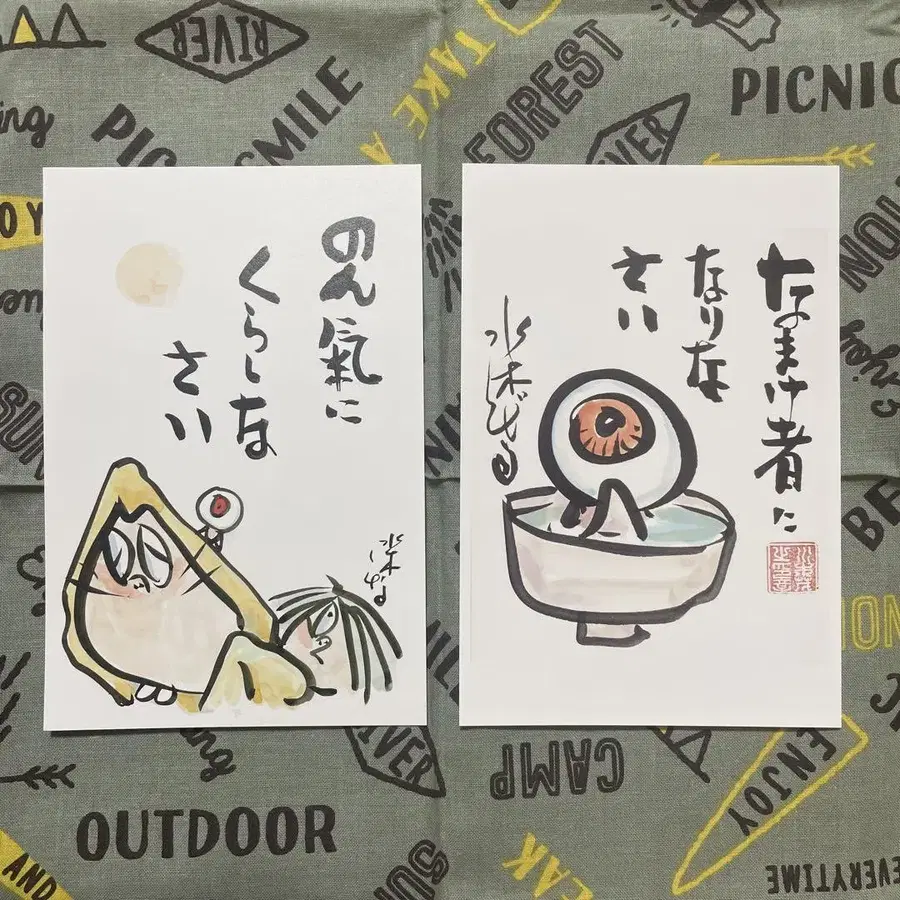 のん氣に
くらしな
さい
水木しげる
なまけ者に
なりな
さい
水木しげる
RIVER
PIC
SMILE
TAKE A
FOREST
RIVER
PICNIC
ENJOY
CAMP
RIVER
OUTDOOR
AND
EVERYTIME